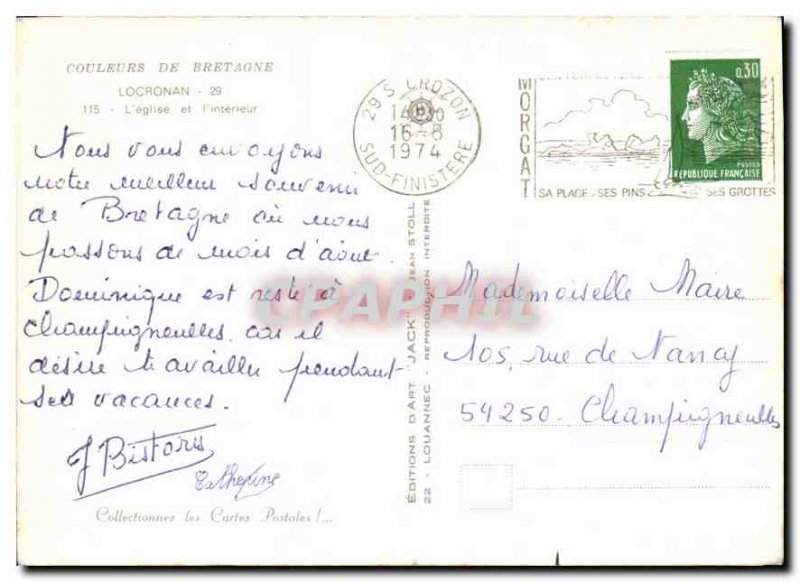 COULEURS DE BRETAGNE
LOCRONAN - 29
115 - L'église et l'intérieur
Nous vous envoyons
notre meilleur souvenir
de Bretagne où nous
passons de mois d'août.
Dominique est resté à
Champigneulles car il
désire travailler pendant
ses vacances.
J Bistors
Catherine
Collectionnez les Cartes Postales !...
ÉDITIONS D'ART "JACK" JEAN STOLL
22 - LOUANNEC - REPRODUCTION INTERDITE
29 S CROZON
16-8
1974
SUD-FINISTERE
MORGAT
SA PLAGE - SES PINS
SES GROTTES
0,30
POSTES
REPUBLIQUE FRANÇAISE
Mademoiselle Maire
105, rue de Nancy
54250 - Champigneulles
CPAPHIL